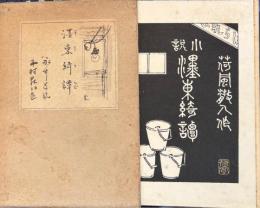 荷風散人作
小説 濹東綺譚
濹東綺譚
木村荘八画